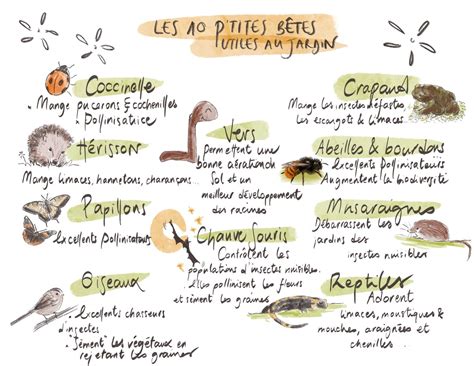 LES 10 P'TITES BÊTES
UTILES AU JARDIN
Coccinelle
• Mange pucerons & cochenilles
• Pollinisatrice
Hérisson
Mange limaces, hannetons, charançons...
Papillons
Excellents Pollinisateurs
Oiseaux
• Excellents chasseurs
d'insectes
• "Sèment" les végétaux en
rejetant les graines
Vers
Permettent une
bonne aération du
Sol et un
meilleur développement
des racines
Chauve Souris
Contrôlent les
populations d'insectes nuisibles.
Elles pollinisent les fleurs
et sèment les graines
Crapaud
Mange les insectes néfastes,
les escargots & limaces.
Abeilles & bourdons
Excellents pollinisateurs
Augmentent la biodiversité
Musaraignes
Débarrassent les
jardins des
insectes nuisibles
Reptiles
Adorent
limaces, moustiques &
mouches, araignées et
chenilles.